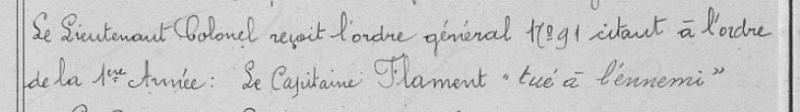 Le Lieutenant Colonel reçoit l'ordre général No 91 citant à l'ordre
de la 1ère Armée : Le Capitaine Flament "tué à l'énnemi"